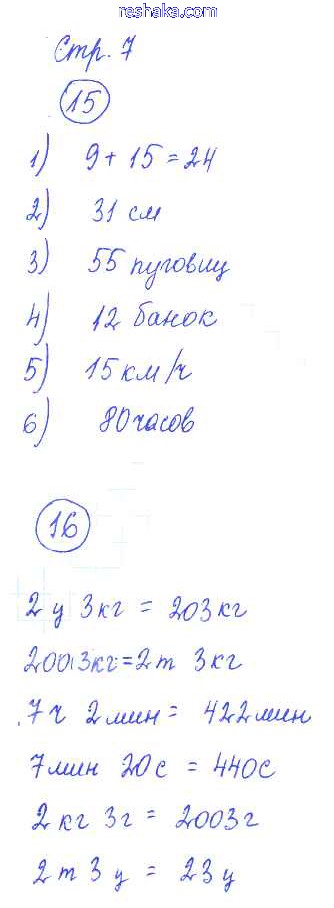 reshaka.com
Стр. 7
15
1) 9 + 15 = 24
2) 31 см
3) 55 пуговиц
4) 12 банок
5) 15 км/ч
6) 80 часов
16
2 ц 3 кг = 203 кг
2003 кг = 2 т 3 кг
7 ч 2 мин = 422 мин
7 мин 20 с = 440 с
2 кг 3 г = 2003 г
2 т 3 ц = 23 ц